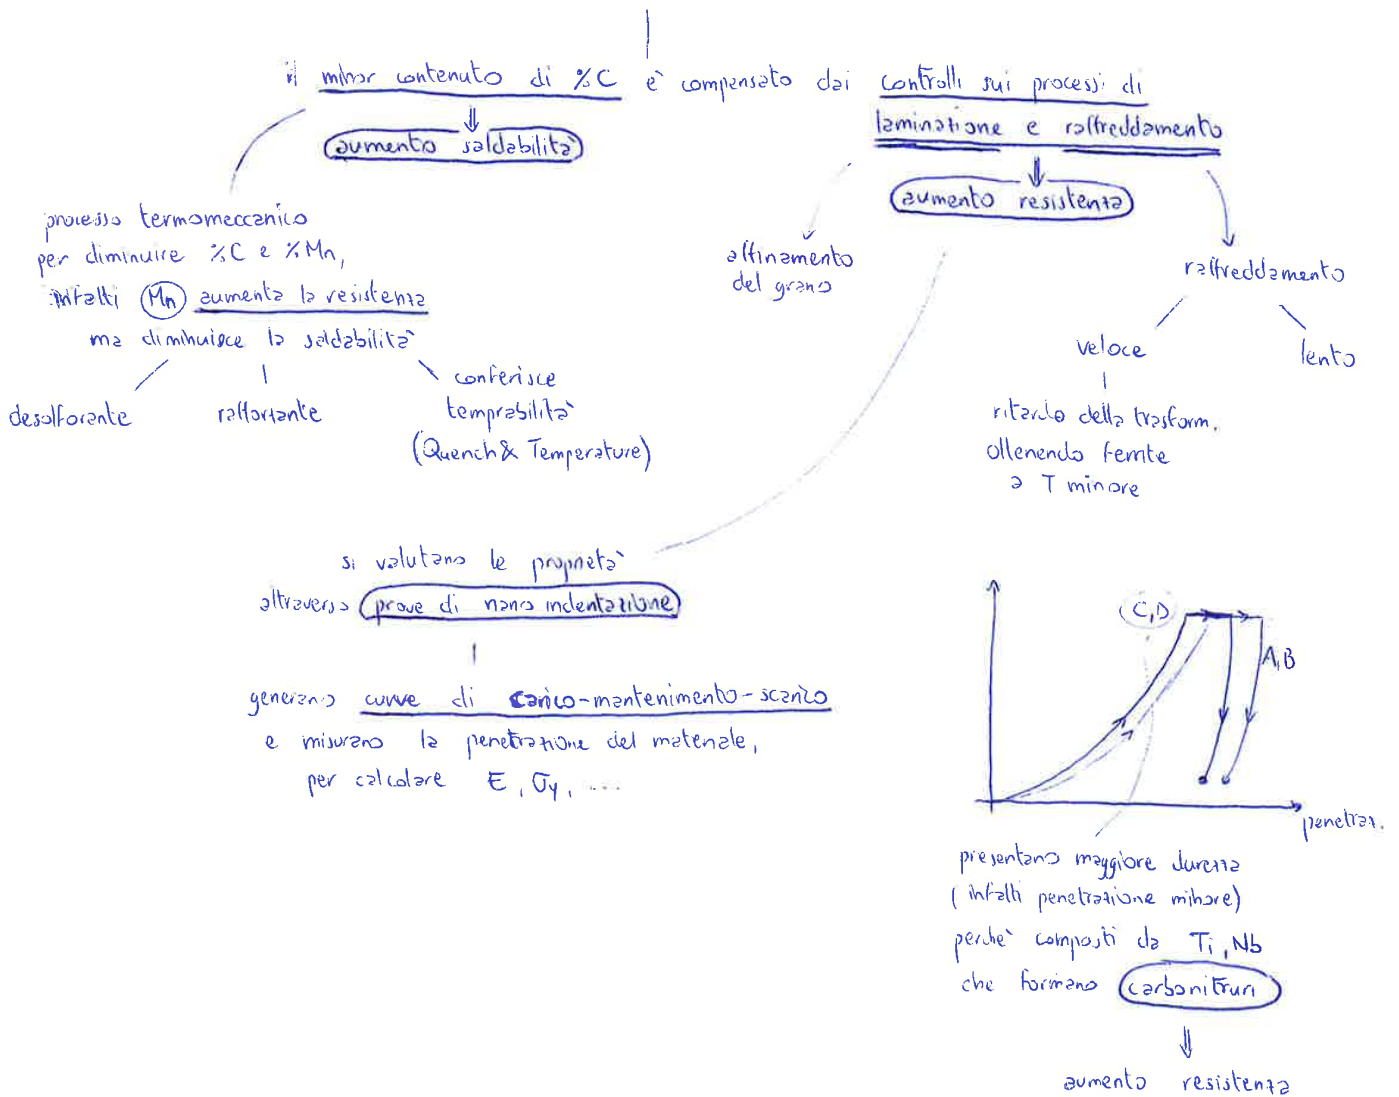 il minor contenuto di %C è compensato dai controlli sui processi di
laminazione e raffreddamento
aumento saldabilità
aumento resistenza
processo termomeccanico
per diminuire %C e %Mn,
infatti Mn aumenta la resistenza
ma diminuisce la saldabilità
desolforante
rafforzante
conferisce
temprabilità
(Quench & Temperature)
affinamento
del grano
raffreddamento
veloce
lento
ritardo della trasform.
ottenendo ferrite
a T minore
si valutano le proprietà
attraverso prove di nano indentazione
generano curve di carico-mantenimento-scarico
e misurano la penetrazione del materiale,
per calcolare E, σy, ....
C,D
A,B
penetraz.
presentano maggiore durezza
(infatti penetrazione minore)
perchè composti da Ti, Nb
che formano carbonitruri
aumento resistenza